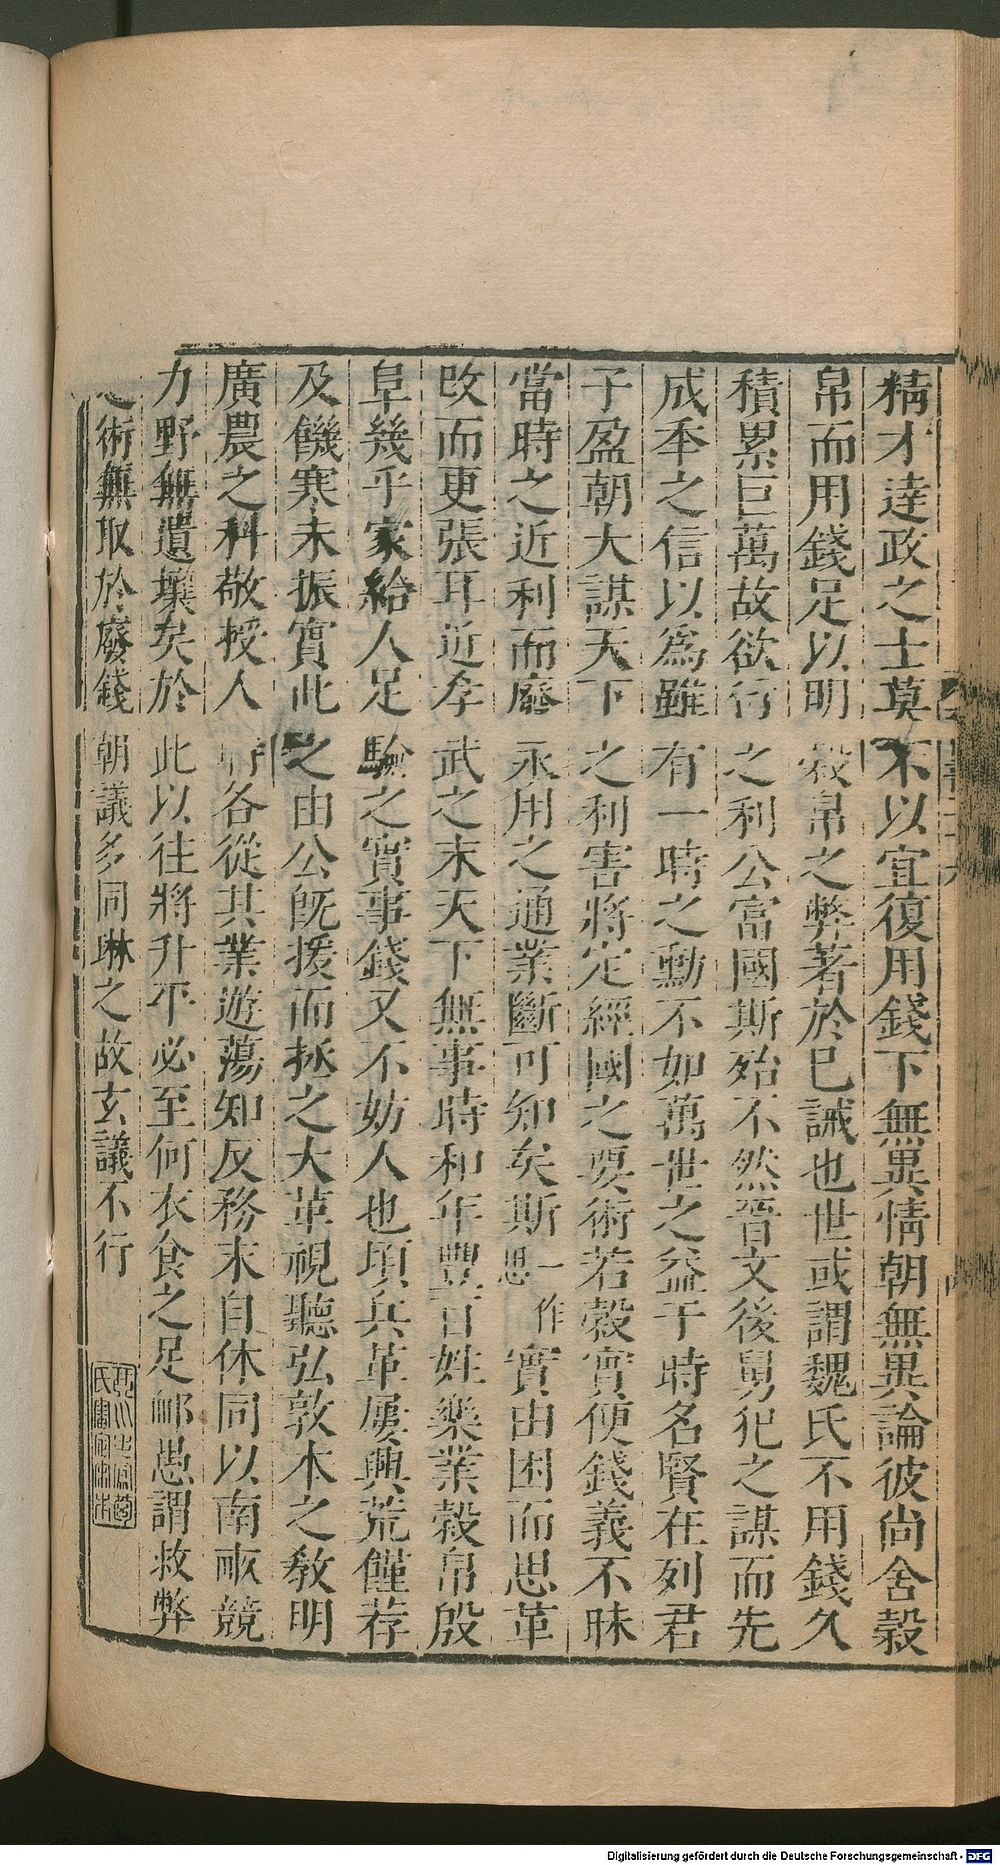 精才達政之士莫不以宜復用錢下無異情朝無異論彼尚舍穀
帛而用錢足以明穀帛之弊著於已誡也世或謂魏氏不用錢久
積累巨萬故欲行之利公富國斯殆不然晉文後舅犯之謀而先
成季之信以爲雖有一時之勳不如萬世之益于時名賢在列君
子盈朝大謀天下之利害將定經國之要術若穀實便錢義不昧
當時之近利而廢永用之通業斷可知矣斯一作思實由困而思革
改而更張耳近孝武之末天下無事時和年豐百姓樂業穀帛殷
阜幾乎家給人足驗之實事錢又不妨人也頃兵革屢興荒饉荐
及饑寒未振實此之由公旣援而拯之大革視聽弘敦本之敎明
廣農之科敬授人時各從其業遊蕩知反務末自休同以南畝競
力野無遺壤矣於此以往將升平必至何衣食之足邺愚謂救弊
之術無取於廢錢朝議多同琳之故玄議不行
Digitalisierung gefördert durch die Deutsche Forschungsgemeinschaft - DFG